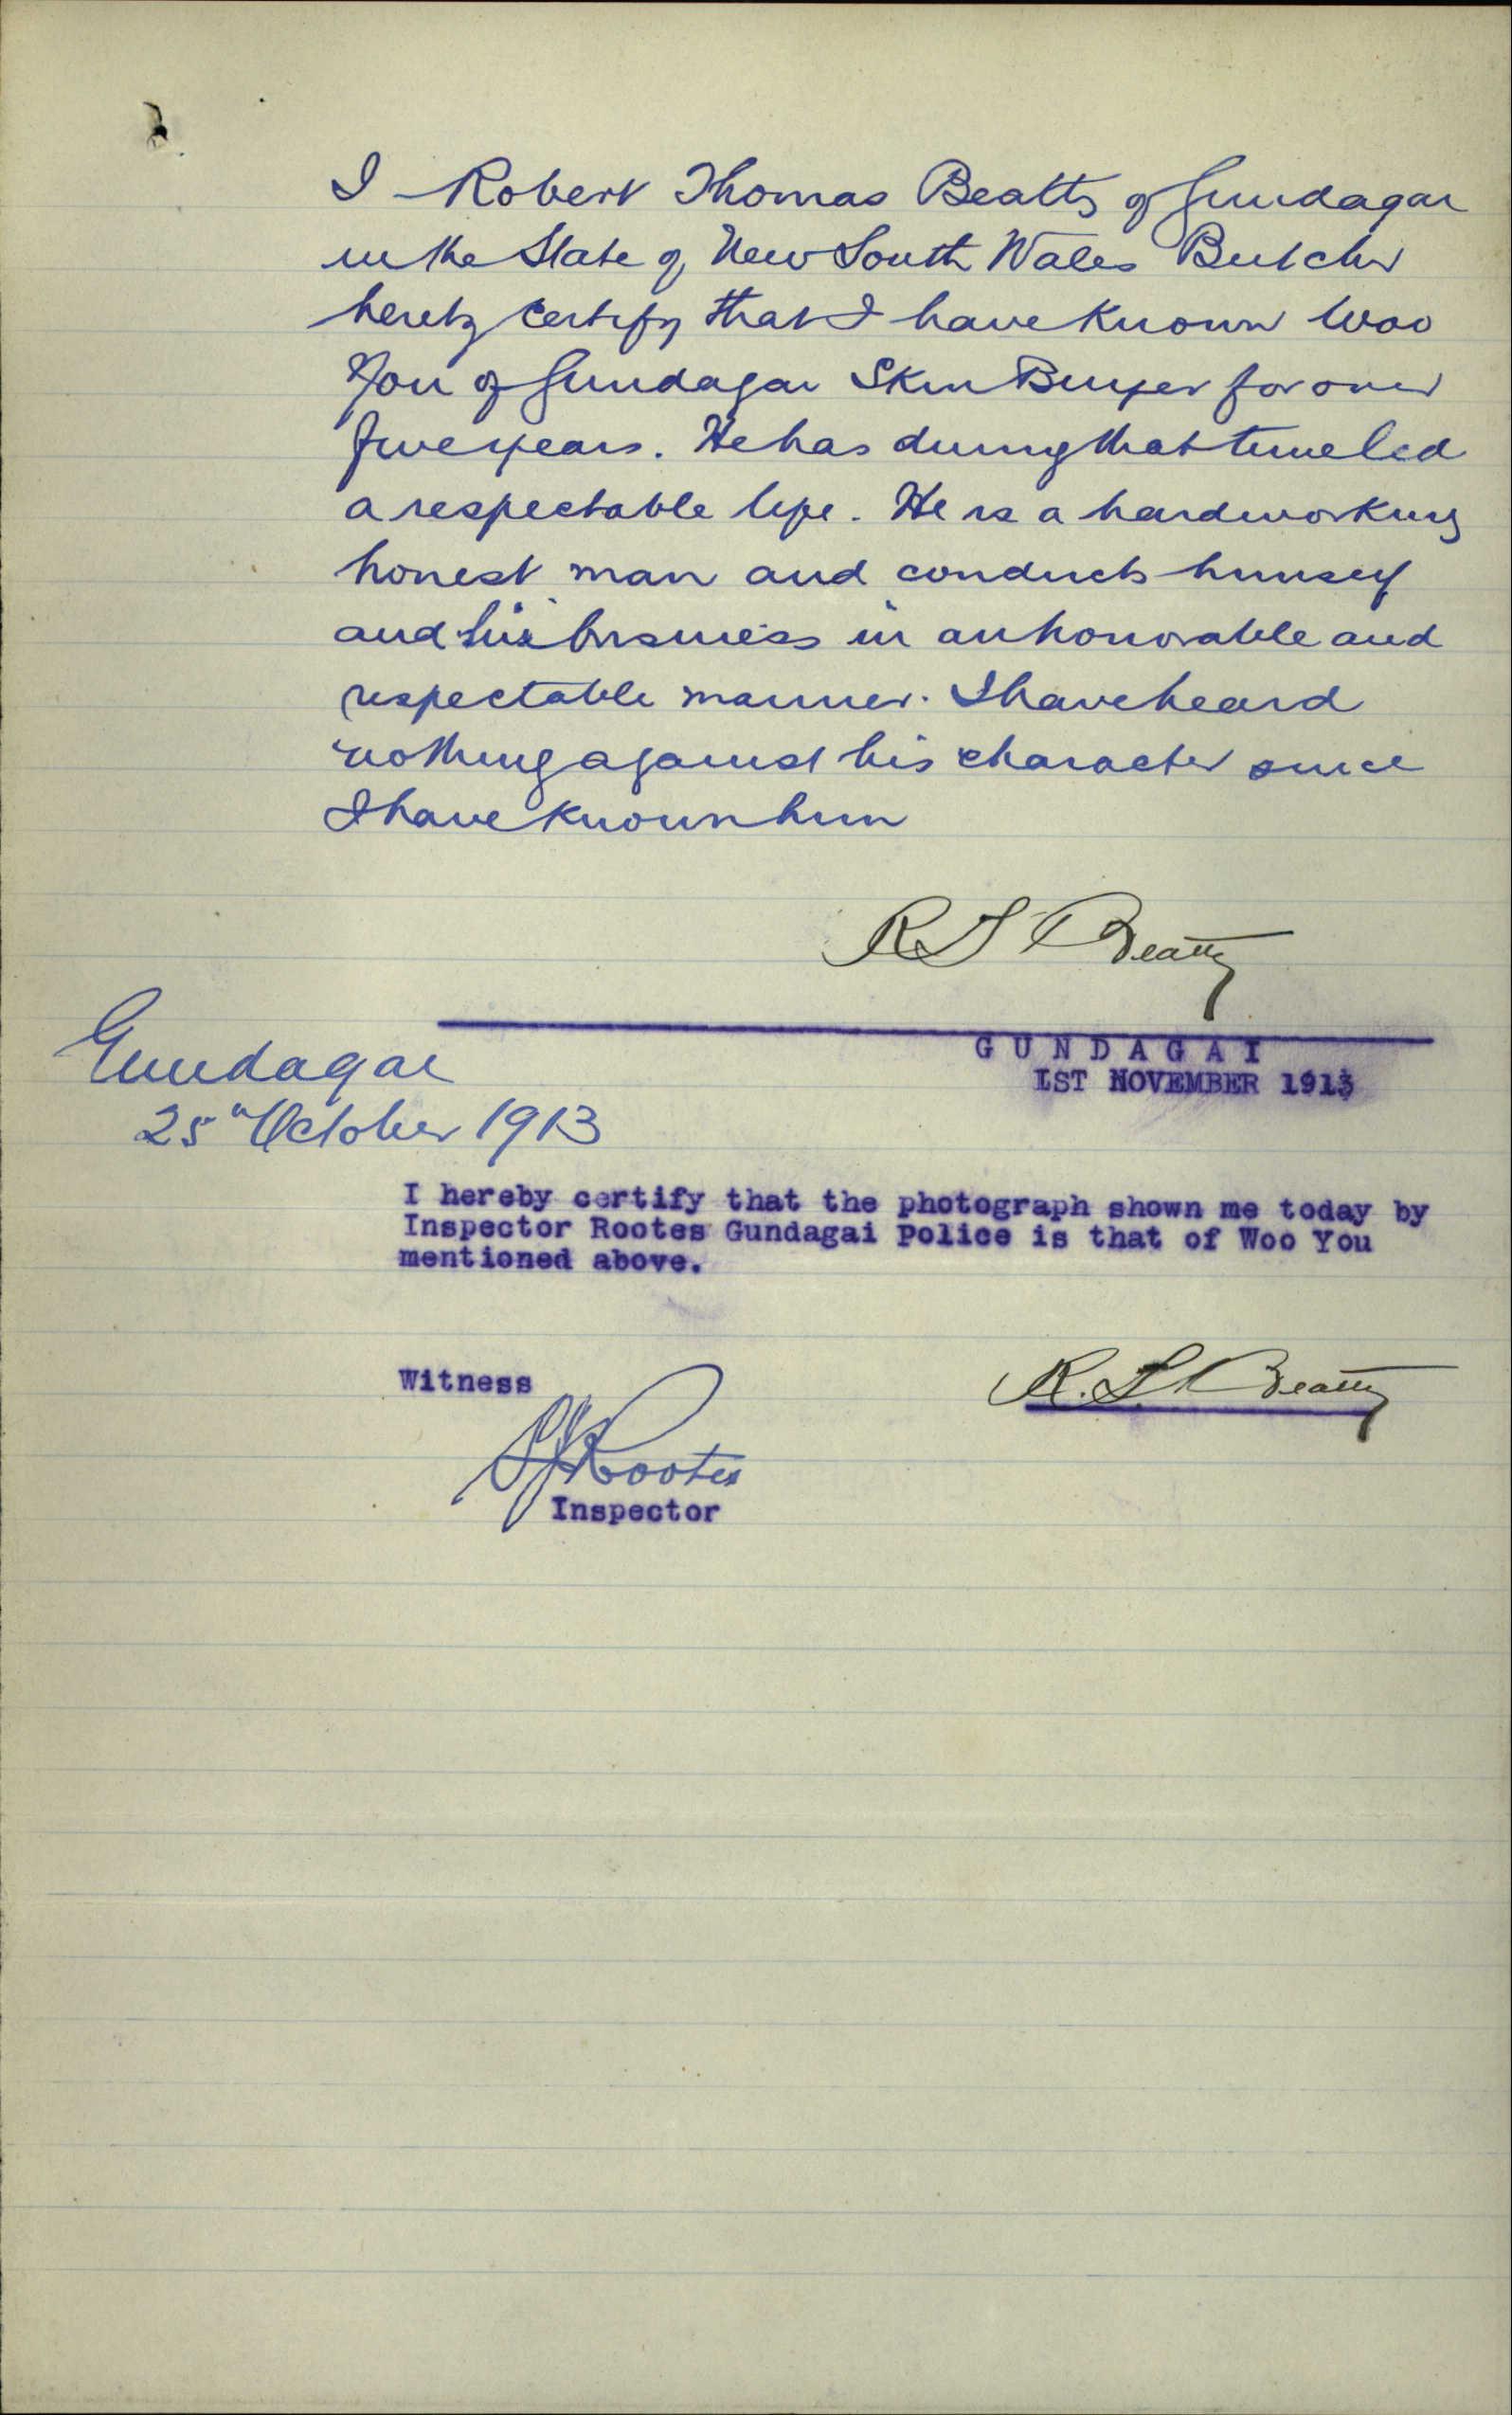 I Robert Thomas Beatty of Gundagai
in the State of New South Wales Butcher
hereby certify that I have known Woo
You of Gundagai Skin Buyer for over
five years. He has during that time led
a respectable life. He is a hardworking
honest man and conducts himself
and his business in an honorable and
respectable manner. I have heard
nothing against his character since
I have known him
R T Beatty
Gundagai
25th October 1913
GUNDAGAI
1ST NOVEMBER 1913
I hereby certify that the photograph shown me today by
Inspector Rootes Gundagai Police is that of Woo You
mentioned above.
Witness
R. T. Beatty
Rootes
Inspector